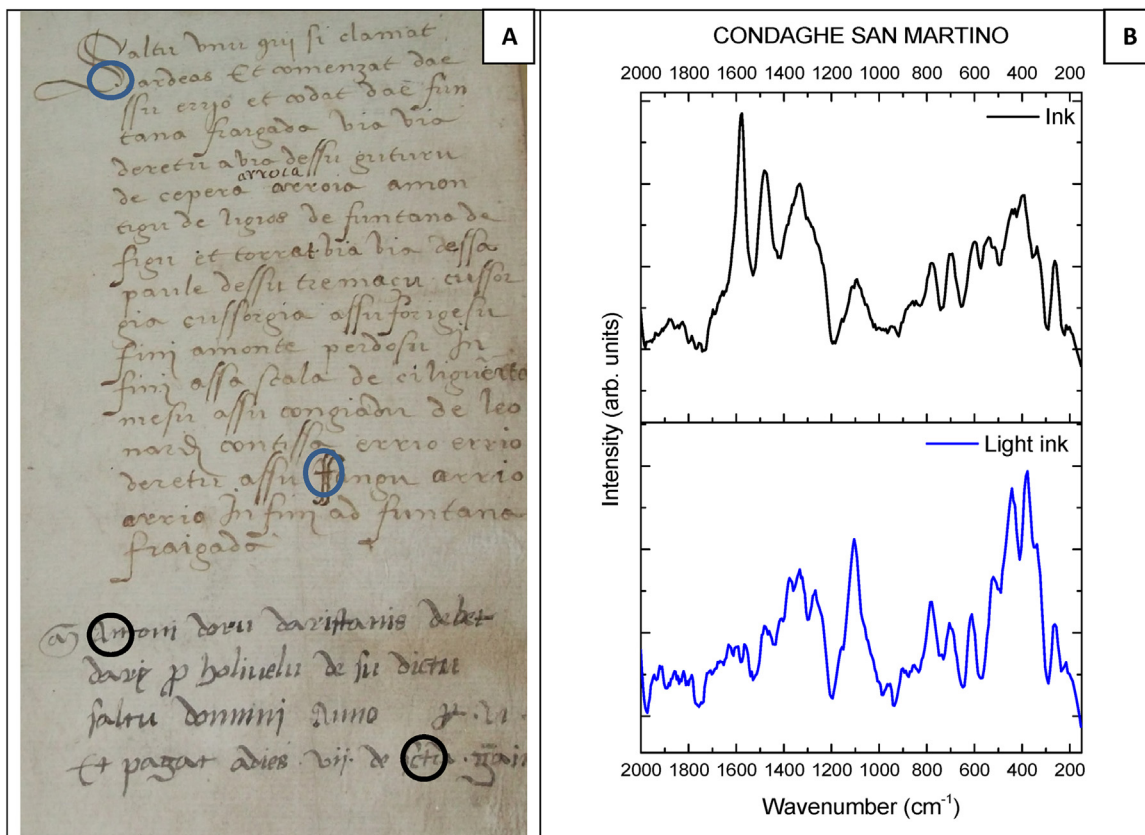 A
Saltu vnu qui si clamat
Dardeas Et comenzat dae
ssu errio et codat dae fun
tana fraigada via via
deretu a via dessu guturu
arroia
de cepera arroia amon
tigu de ligios de funtana de
figu et torrat via via dessa
paule dessu tremaçu cussor
gia cussorgia assu forigesu
fini amonte perdosu In
fini assa scala de
mesu assu congiadu de leo
nardj contissa errio errio
deretu assu fangu arrio
arrio In fini ad funtana
fraigada
Antoni doru daristanis debet
darj p holiuelu de su dictu
saltu donnini Anno
Et pagat adies vij de
B
CONDAGHE SAN MARTINO
2000 1800 1600 1400 1200 1000 800 600 400 200
Ink
Light ink
Intensity (arb. units)
2000 1800 1600 1400 1200 1000 800 600 400 200
Wavenumber (cm⁻¹)